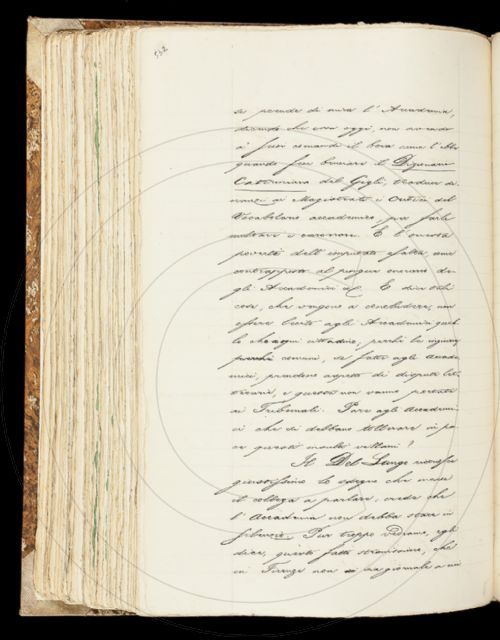 562
se prende di mira l'Accademia,
dicendo che non oggi, non avendo
a' suoi comandi il boia come l'ebbe
quando fece bruciare il Dizionario
Cateriniano del Gigli, traduce di-
nanzi ai Magistrati i Critici del
Vocabolario accademico, per farli
multare e carcerare. E l'onesta
povertà dell'imputato è fatta come
contrapposto al pingue onorario de-
gli Accademici &c. E dice altre
cose, che vengono a concludere, non
essere lecito agli Accademici quel-
lo che a ogni cittadino, perchè le ingiurie
comuni, se fatte agli Accade-
mici, prendono aspetto di dispute let-
terarie, e queste non vanno portate
ai Tribunali. Pare agli Accademi-
ci che si debbano tollerare in pa-
ce questi insulti villani?
Il Del Lungo
giustissimo lo sdegno che muove
il collega a parlare, crede che
l'Accademia non debba stare in
silenzio. Pur troppo vediamo, egli
dice, questo fatto stranissimo, che
in Firenze non va giornale o un